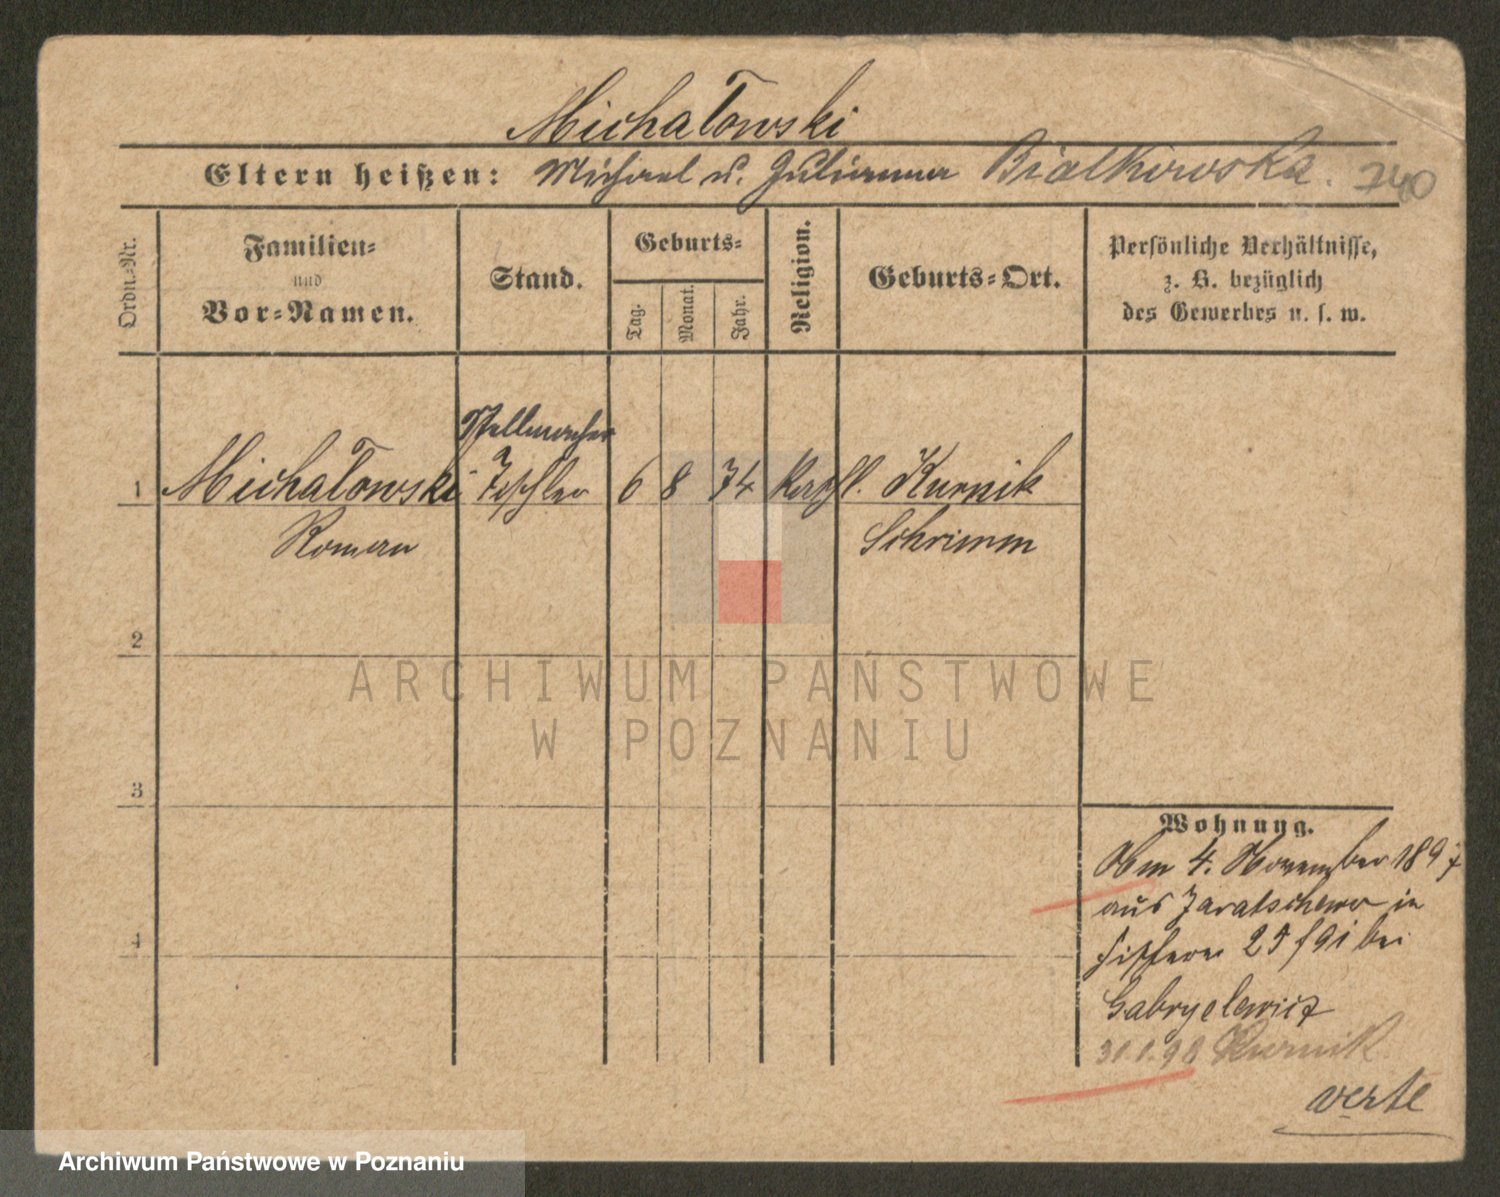 Michałowski
Eltern heißen: Michael u. Julianna Bialkowska. 740
Ordn.-Nr.
Familien-
und
Vor-Namen.
Stand.
Geburts-
Tag.
Monat.
Jahr.
Religion.
Geburts-Ort.
Persönliche Verhältnisse,
z. B. bezüglich
des Gewerbes u. s. w.
Stellmacher
1 Michałowski Tischler 6 8 74 Kathl. Kurnik
Roman Schrimm
2
3
4
Wohnung.
4. November 1897
aus Jaratschewo in
Fischerei 25 bei
Gabryelewicz
31.1.98 Kurnik
verte
ARCHIWUM PAŃSTWOWE
W POZNANIU
Archiwum Państwowe w Poznaniu